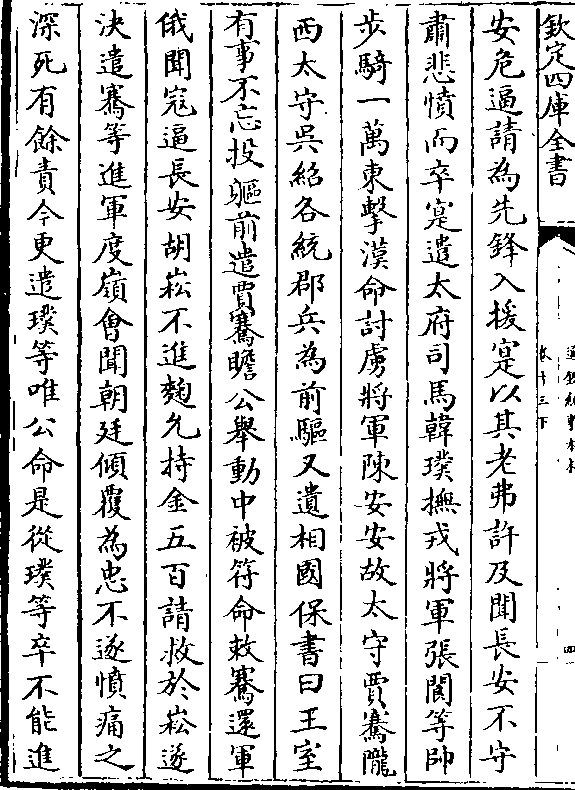 欽定四庫全書
通鑑紀事本末
卷十三下
四
安危逼請為先鋒入援寔以其老弗許及聞長安不守
肅悲憤而卒寔遣太府司馬韓璞撫戎將軍張閬等帥
步騎一萬東擊漢命討虜將軍陳安安故太守賈騫隴
西太守吳紹各統郡兵為前驅又遺相國保書曰王室
有事不忘投軀前遣賈騫瞻公舉動中被符命敕騫還軍
俄聞寇逼長安胡崧不進麴允持金五百請救於崧遂
決遣騫等進軍度嶺會聞朝廷傾覆為忠不遂憤痛之
深死有餘責今更遣璞等唯公命是從璞等卒不能進